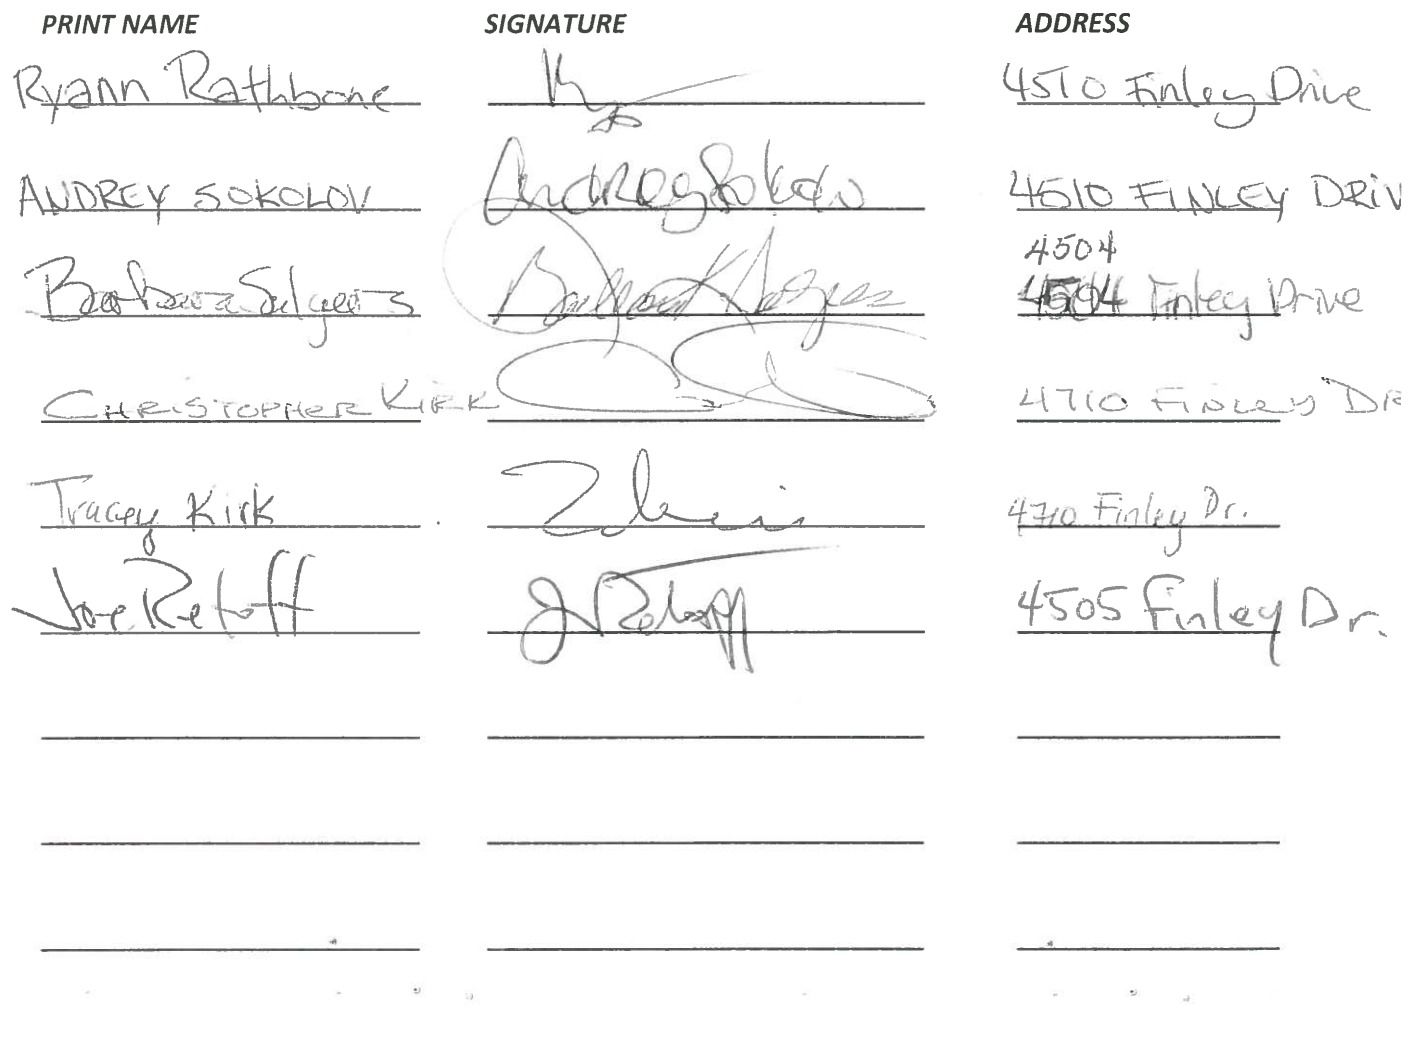 PRINT NAME SIGNATURE ADDRESS
Ryann Rathbone 4510 Finley Drive
ANDREY SOKOLOV Andrey Sokolov 4510 FINLEY DRIV
4504
Barbara Salyers 4504 Finley Drive
CHRISTOPHER KIRK 4710 FINLEY DR
Tracey Kirk 4710 Finley Dr.
Joe Retoff J Retoff 4505 Finley Dr.